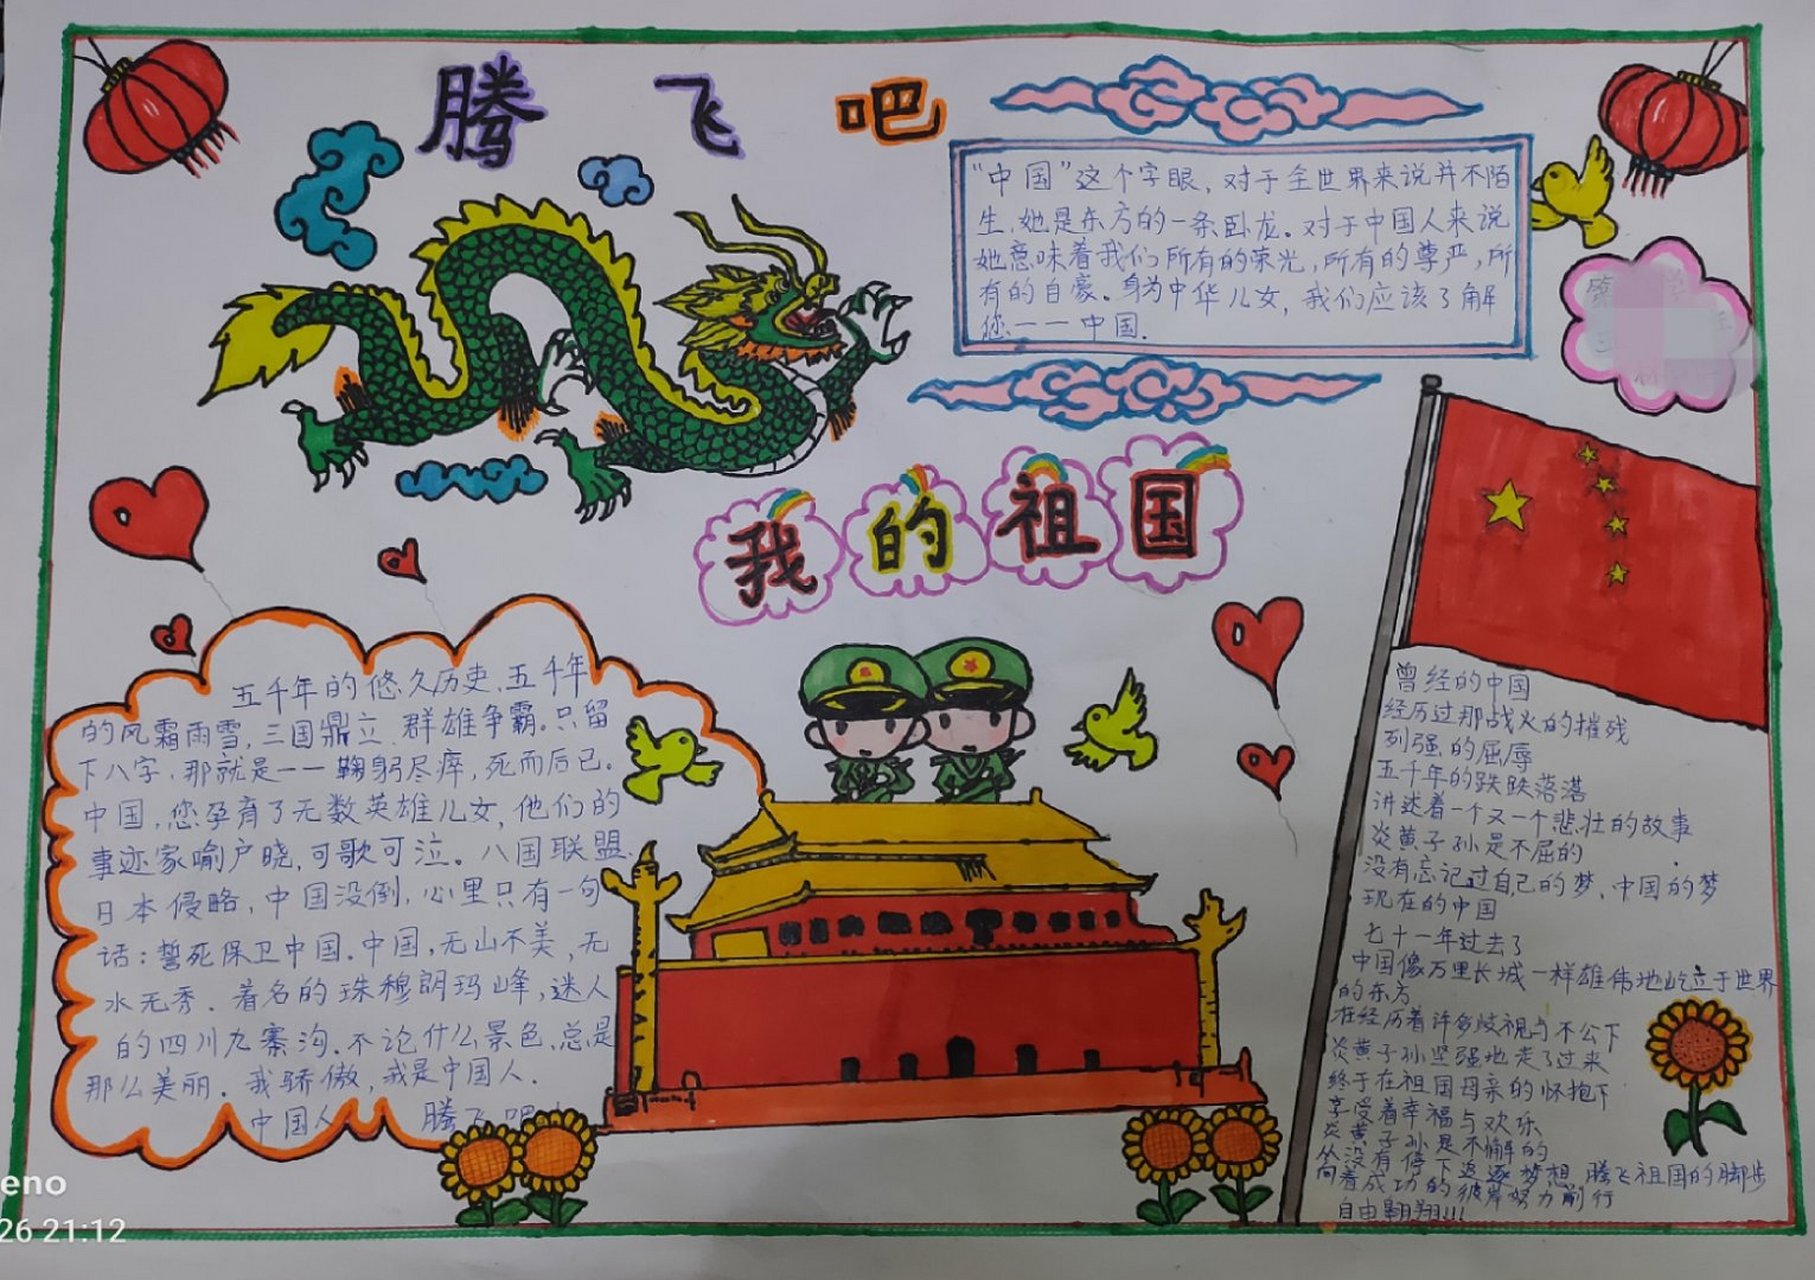 腾飞吧
“中国”这个字眼，对于全世界来说并不陌
生，她是东方的一条卧龙。对于中国人来说
她意味着我们所有的荣光，所有的尊严，所
有的自豪。身为中华儿女，我们应该了解
您——中国.
我的祖国
五千年的悠久历史、五千年
的风霜雨雪，三国鼎立、群雄争霸。只留
下八字，那就是——鞠躬尽瘁，死而后已.
中国，您孕育了无数英雄儿女，他们的
事迹家喻户晓，可歌可泣。八国联盟、
日本侵略，中国没倒，心里只有一句
话：誓死保卫中国.中国，无山不美，无
水无秀．着名的珠穆朗玛峰，迷人
的四川九寨沟.不论什么景色，总是
那么美丽．我骄傲，我是中国人．
中国人 腾飞吧
曾经的中国
经历过那战火的摧残
列强的屈辱
五千年的跌跌落落
讲述着一个又一个悲壮的故事
炎黄子孙是不屈的
没有忘记过自己的梦、中国的梦
现在的中国
七十一年过去了
中国像万里长城一样雄伟地屹立于世界
的东方
在经历着许多歧视与不公下
炎黄子孙坚强地走了过来
终于在祖国母亲的怀抱下
享受着幸福与欢乐
炎黄子孙是不懈的
从没有停下追逐梦想、腾飞祖国的脚步
向着成功的彼岸努力前行
自由翱翔!!!
eno
26 21:12